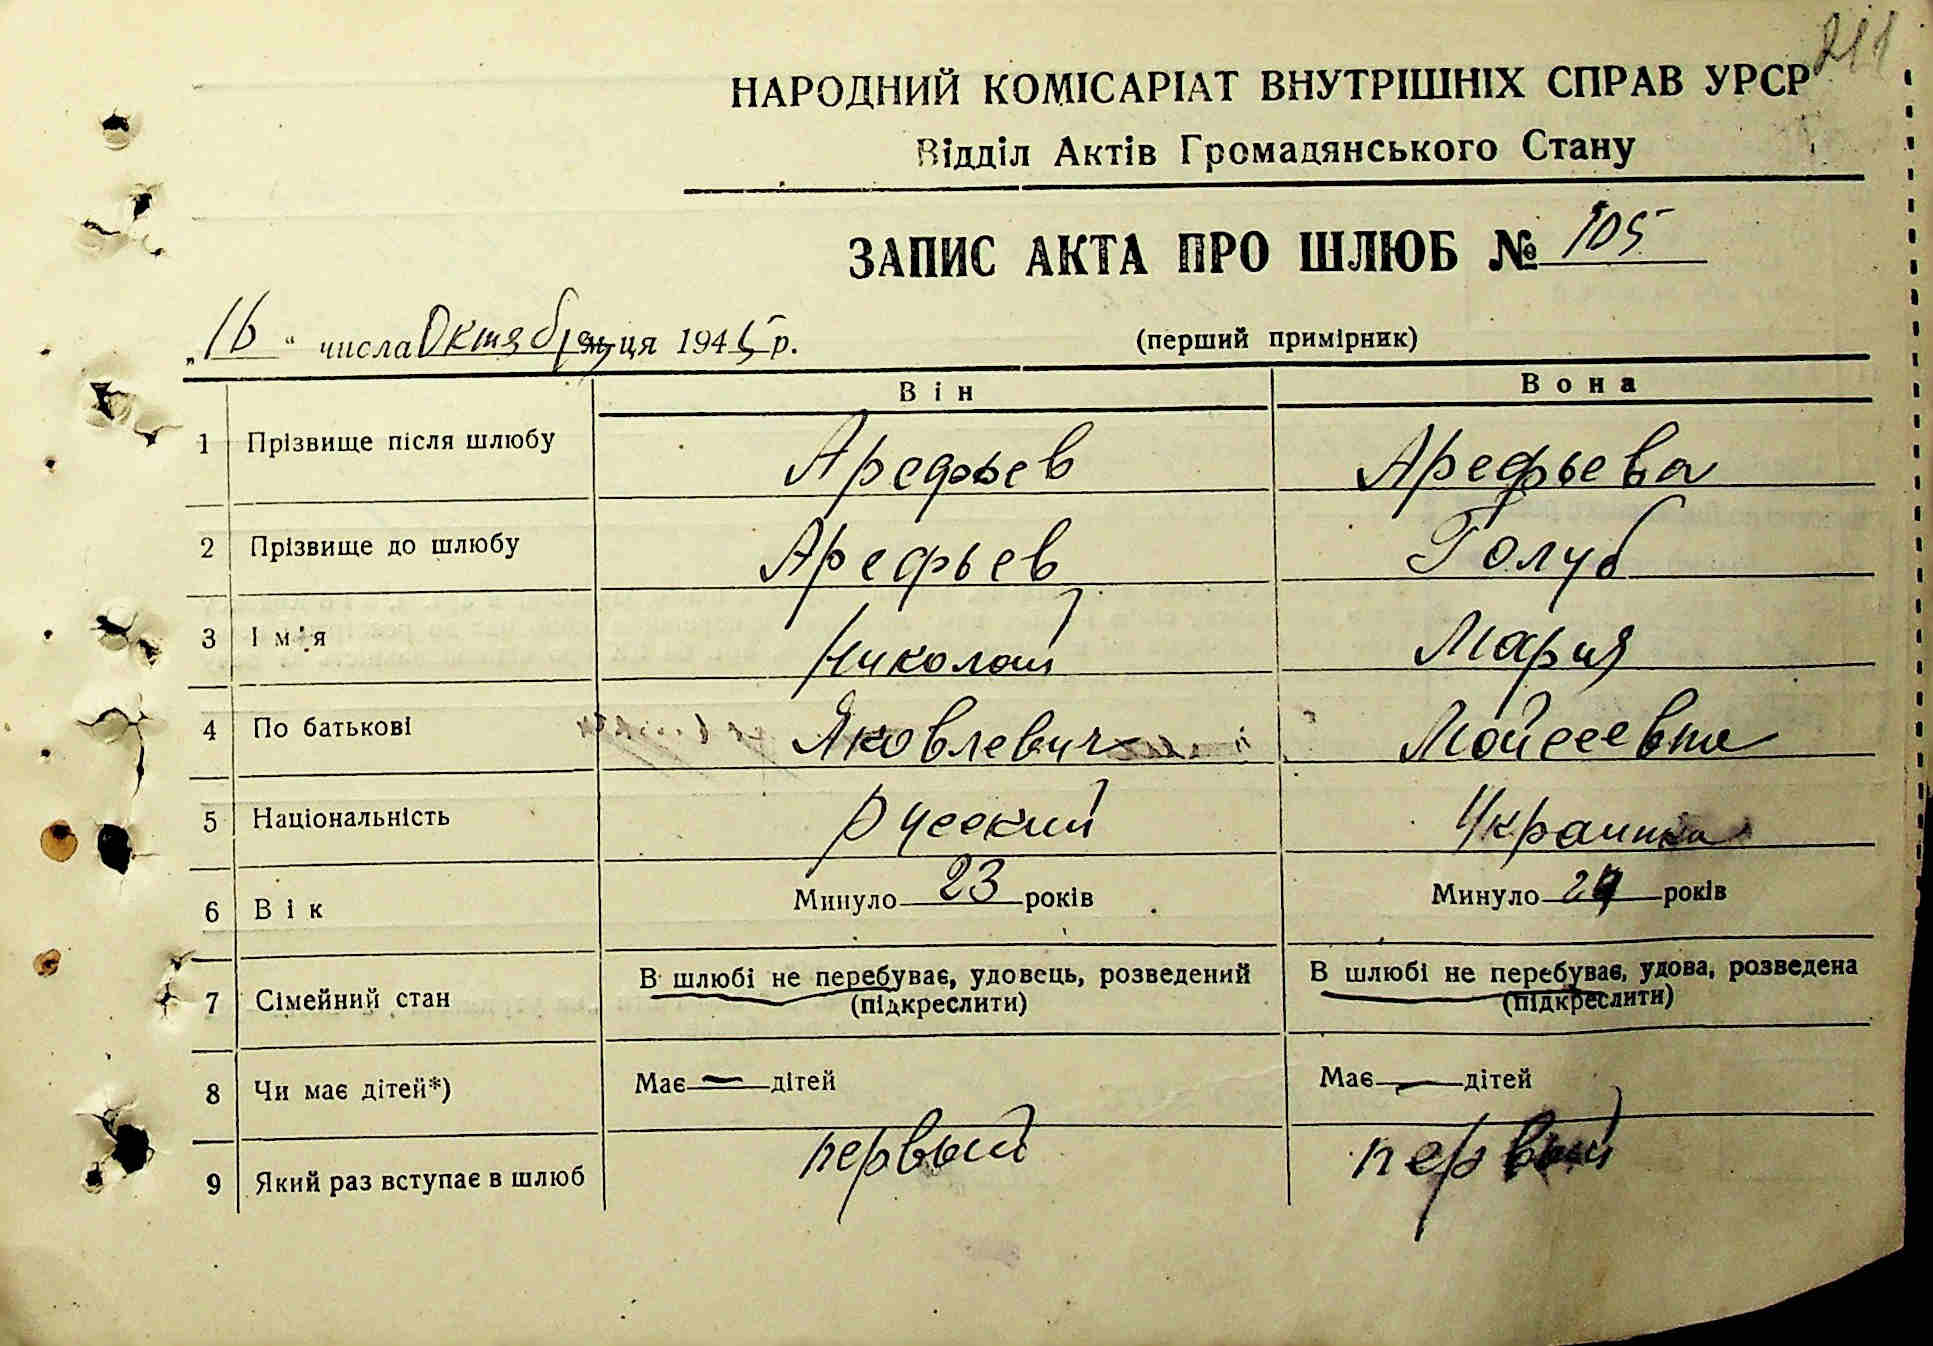 211
НАРОДНИЙ КОМІСАРІАТ ВНУТРІШНІХ СПРАВ УРСР
Відділ Актів Громадянського Стану
ЗАПИС АКТА ПРО ШЛЮБ № 105
„16“ числа Октября ця 1945 р. (перший примірник)
Він Вона
1 Прізвище після шлюбу Арефьев Арефьева
2 Прізвище до шлюбу Арефьев Голуб
3 Ім'я Николай Мария
4 По батькові Яковлевич Мойсеевна
5 Національність Русский Украинка
6 Вік Минуло 23 років Минуло років
7 Сімейний стан В шлюбі не перебуває, удовець, розведений (підкреслити) В шлюбі не перебуває, удова, розведена (підкреслити)
8 Чи має дітей*) Має — дітей Має — дітей
9 Який раз вступає в шлюб первый первый